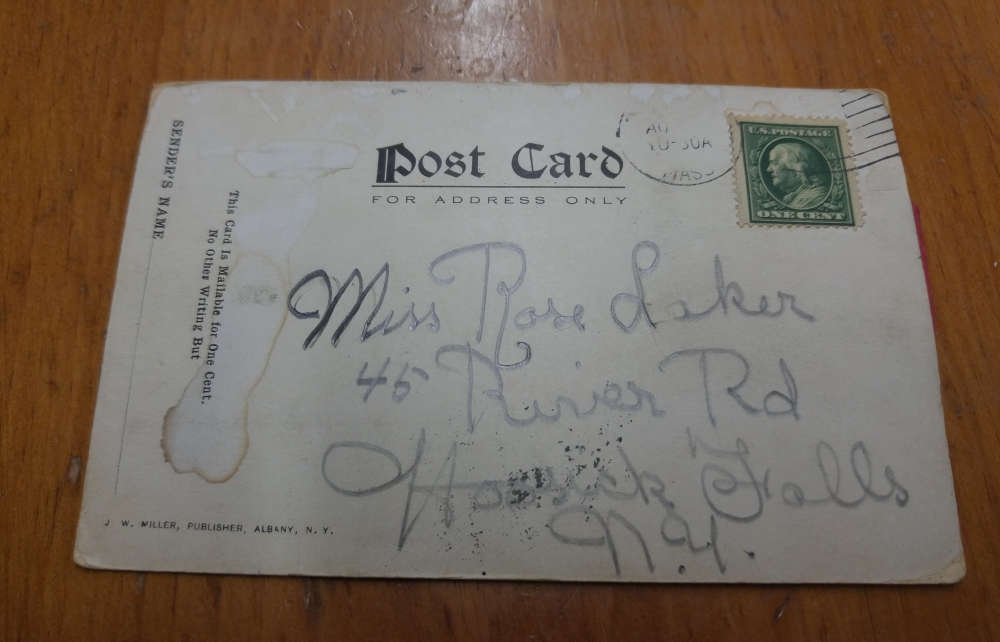 SENDER'S NAME
This Card Is Mailable for One Cent.
No Other Writing But
Post Card
FOR ADDRESS ONLY
MASS
U.S. POSTAGE
ONE CENT
Miss Rose Laker
45 River Rd
Hoosick Falls
N.Y.
J. W. MILLER, PUBLISHER, ALBANY, N. Y.